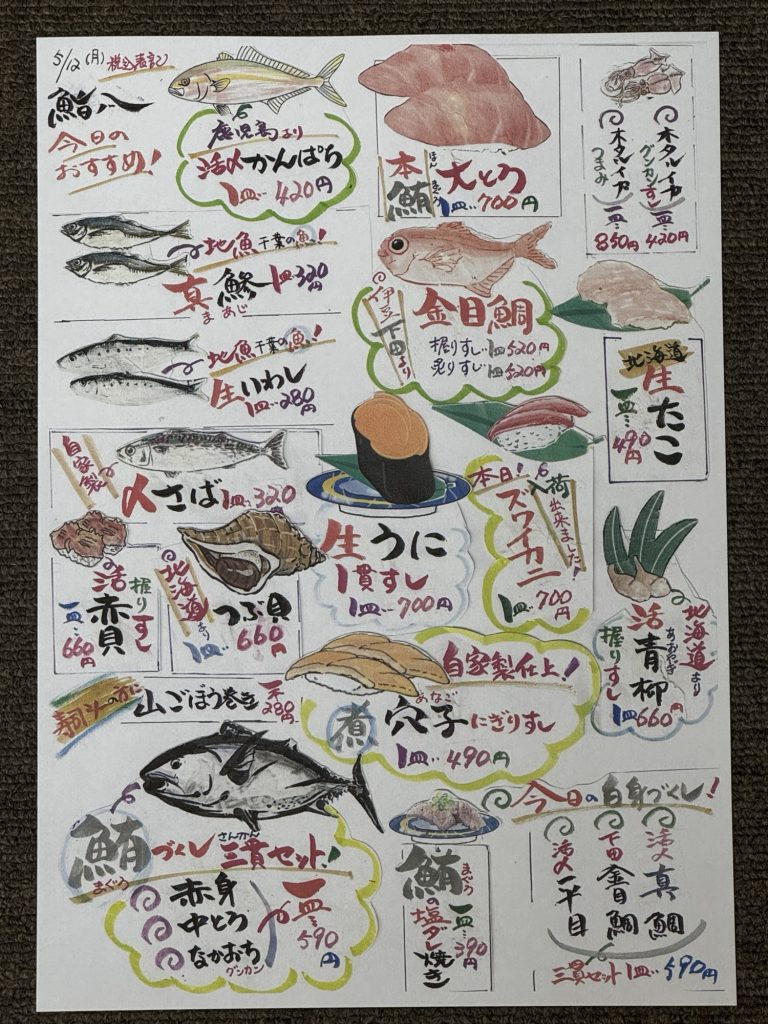 5/12(月)税込表記
鮨八
今日の
おすすめ!
鹿児島より
活〆かんぱち
1皿‥420円
本鮪
ほんまぐろ
大とろ
1皿‥700円
ホタルイカ
グンカンすし
一皿‥420円
ホタルイカ
つまみ
一皿‥850円
地魚千葉の魚!
真鯵 1皿320円
まあじ
伊豆下田より
金目鯛
握りすし‥1皿520円
炙りすし‥1皿520円
地魚千葉の魚!
生いわし
1皿‥280円
北海道
生たこ
一皿‥490円
自家製
〆さば1皿‥320円
生うに
1貫すし
1皿‥700円
本日!入荷出来ました!
ズワイカニ
1皿‥700円
活赤貝
握りすし
一皿‥660円
北海道より
つぶ貝
1皿‥660円
北海道より
活青柳
あおやぎ
握りすし
1皿660円
寿司〆の前に
山ごぼう巻き
一本280円
自家製仕上!
煮穴子にぎりすし
あなご
1皿‥490円
鮪づくし三貫セット!
まぐろ
さんかん
赤身
中とろ
なかおち
グンカン
一皿‥590円
鮪の塩ダレ焼き
まぐろ
一皿‥390円
今日の白身づくし!
活〆真鯛
下田金目鯛
活〆平目
三貫セット1皿‥590円